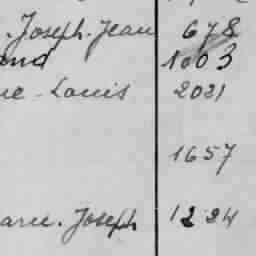 . Joseph. Jean 678
and 1003
ne - Louis 2021
1657
arie. Joseph 1224